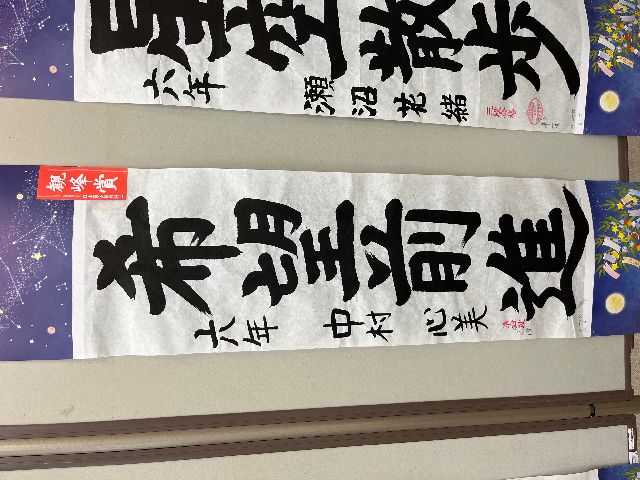 星空散歩
六年 瀬沼花緒
観峰賞
希望前進
六年 中村心美